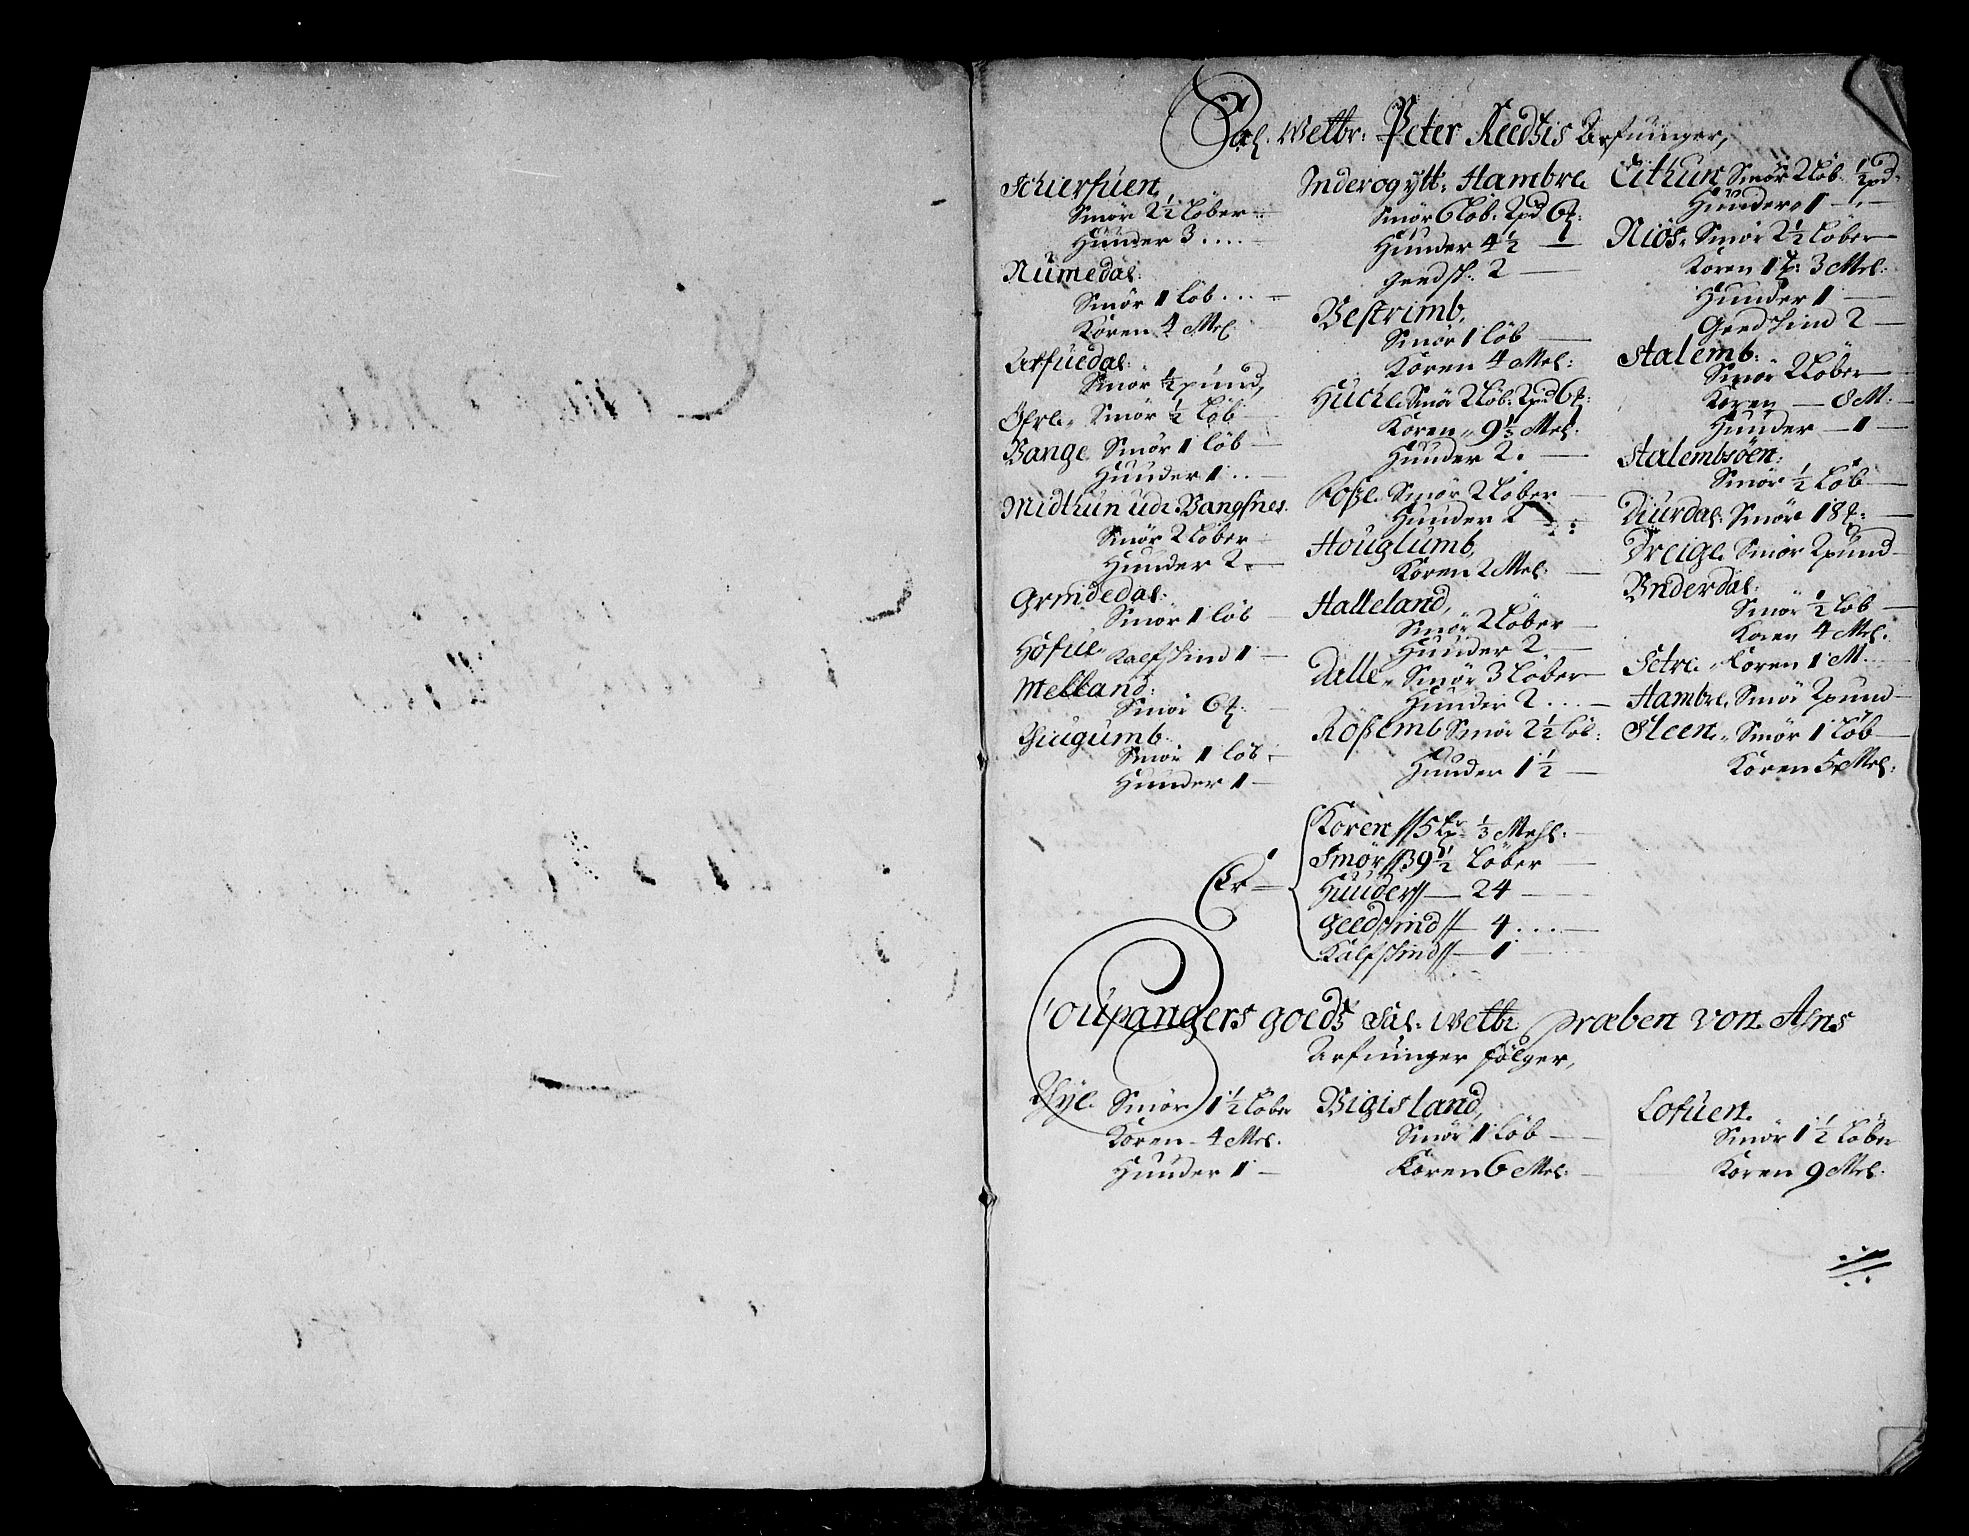 Sal. Welbr: Peter Reedtzis Arfuinger,
Schierfuen,
Smör 2½ Löber
Hunder 3
Numedal:
Smör 1 Löb
Koren 4 Mel:
Arfuedal:
Smör ½ pund,
Ofrl. Smör ½ Löb
Bange Smör 1 Löb
Hunder 1
Midthun udi Bangsnes.
Smör 2 Löber
Hunder 2
Grindedal:
Smör 1 Löb
Höfue Kalfskind 1
Melland:
Smör 6
Thiugumb
Smör 1 Löb
Hunder 1
Inderogytt. Hambre
Smör 6 Löb. 2 pd 6
Hunder 4½
Geedsk: 2
Vestrimb,
Smör 1 Löb
Koren 4 Mel:
Hucle Smör 2 Löb: 2 pd 6
Koren 9⅓ Mel:
Hunder 2
Fosse Smör 2 Löber
Hunder 2
Houglumb,
Koren 2 Mel:
Halleland,
Smör 2 Löber
Hunder 2
Dalle Smör 3 Löber
Hunder 2
Rössemb Smör 2½ Löb:
Hunder 1½
Eithun Smör 2 Löb. ½ pd.
Hunder 1
Niös. Smör 2½ Löber
Koren 1 3 Mel:
Hunder 1
Geedskind 2
Stalemb:
Smör 2 Löber
Koren 8 M:
Hunder 1
Stalembsöen:
Smör ½ Löb
Diurdal: Smör 18
Dreige Smör 2 pund
Vnderdal:
Smör ½ Löb
Koren 4 Mel.
Setre Koren 1 M
Hambre, Smör 2 pund
Steen Smör 1 Löb
Koren 5 Mel:
Koren // 5 ⅓ Mehl:
Smör // 39½ Löber
Er Hunder // 24
Geedskind // 4
Kalfskind // 1
Coupangers goeds Sal: Welbr Præben von Ahns
Arfuinger fölger,
Thyl Smör 1½ Löber
Koren 4 Mel.
Hunder 1
Vigisland,
Smör 1 Löb
Koren 6 Mel:
Lofuen.
Smör 1½ Löber
Koren 9 Mel: